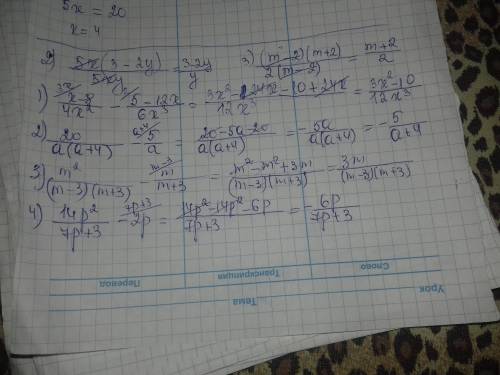 5x = 20
x = 4
2) 5x(3-2y)/5xy = 3-2y/y 3) (m-2)(m+2)/2(m-2) = m+2/2
1) x-8/4x² - 5-12x/6x³ = 3x²-24x-10+24x/12x³ = 3x²-10/12x³
2) 20/a(a+4) - 5/a = 20-5a-20/a(a+4) = -5a/a(a+4) = -5/a+4
3) m²/(m-3)(m+3) - m/m+3 = m²-m²+3m/(m-3)(m+3) = 3m/(m-3)(m+3)
4) 14p²/7p+3 - 2p = 14p²-14p²-6p/7p+3 = -6p/7p+3
Перевод Транскрипция Слово
Тема Урок